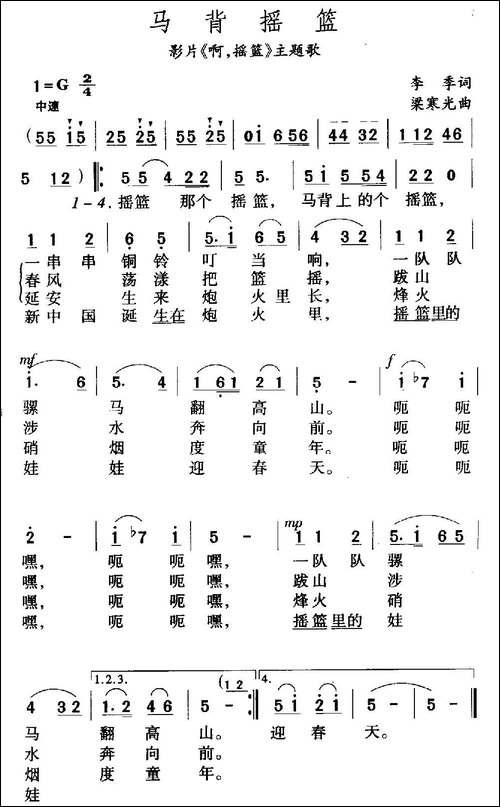 马背摇篮
影片《啊,摇篮》主题歌
1=G 2/4 李季词
中速 梁寒光曲
(55 i5 | 25 25 | 55 25 | 0i 6 56 | 44 32 | 1 12 46 |
5 12) ‖: 55 4 22 | 5 5· | 5i 5 54 | 22 0 |
1-4.摇篮 那个 摇篮, 马背上的个 摇篮,
1 1 2 | 6 5 | 5· i 65 | 4 32 | 1 1 2 |
一串串 铜铃 叮当 响, 一队队
春风 荡漾 把篮 摇, 跋山
延安 生来 炮火里长, 烽火
新中国诞生在炮火里, 摇篮里的
mf f
i· 6 | 5· 4 | 1 61 21 | 5 - | i ♭7 i |
骡 马 翻高 山。 呃 呃
涉 水 奔向 前。 呃 呃
硝 烟 度童 年。 呃 呃
娃 娃 迎春 天。 呃 呃
mp
2 - | i ♭7 i | 5 - | 1 1 2 | 5· i 65 |
嘿, 呃 呃 嘿, 一队队 骡
嘿, 呃 呃 嘿, 跋山 涉
嘿, 呃 呃 嘿, 烽火 硝
嘿, 呃 呃 嘿, 摇篮里的 娃
1.2.3. (12 4.
4 32 | 1·2 46 | 5 - :‖ 51 21 | 5 - | 5 - ‖
马 翻高 山。 迎春 天。
水 奔向 前。
烟 度童 年。
娃